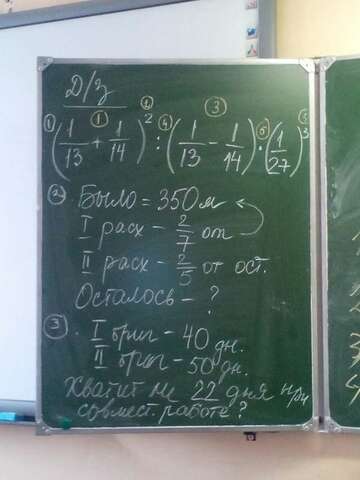 Д/з
① (1/13 + 1/14)² : (1/13 − 1/14) · (1/27)³
② Было = 350 м
I расх – 2/7 от
II расх – 2/5 от ост.
Осталось – ?
③. I бриг – 40 дн.
II бриг – 50 дн.
Хватит ли 22 дня при
совмест. работе?